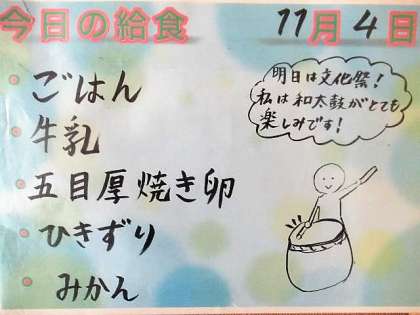 今日の給食 11月4日
ごはん
牛乳
五目厚焼き卵
ひきずり
みかん
明日は文化祭!
私は和太鼓がとても
楽しみです!